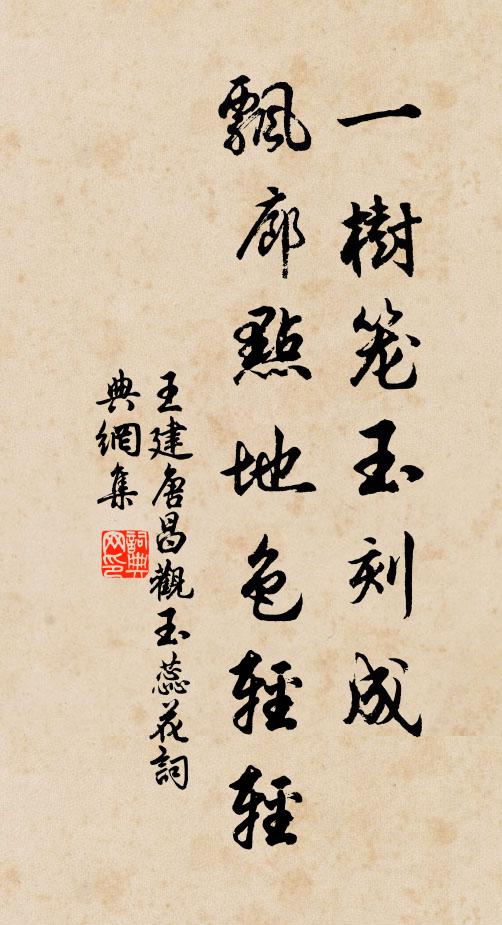 一樹笼玉刻成
飄廊點地色輕輕
王建唐昌觀玉蕊花詞
典網集
詞典网印